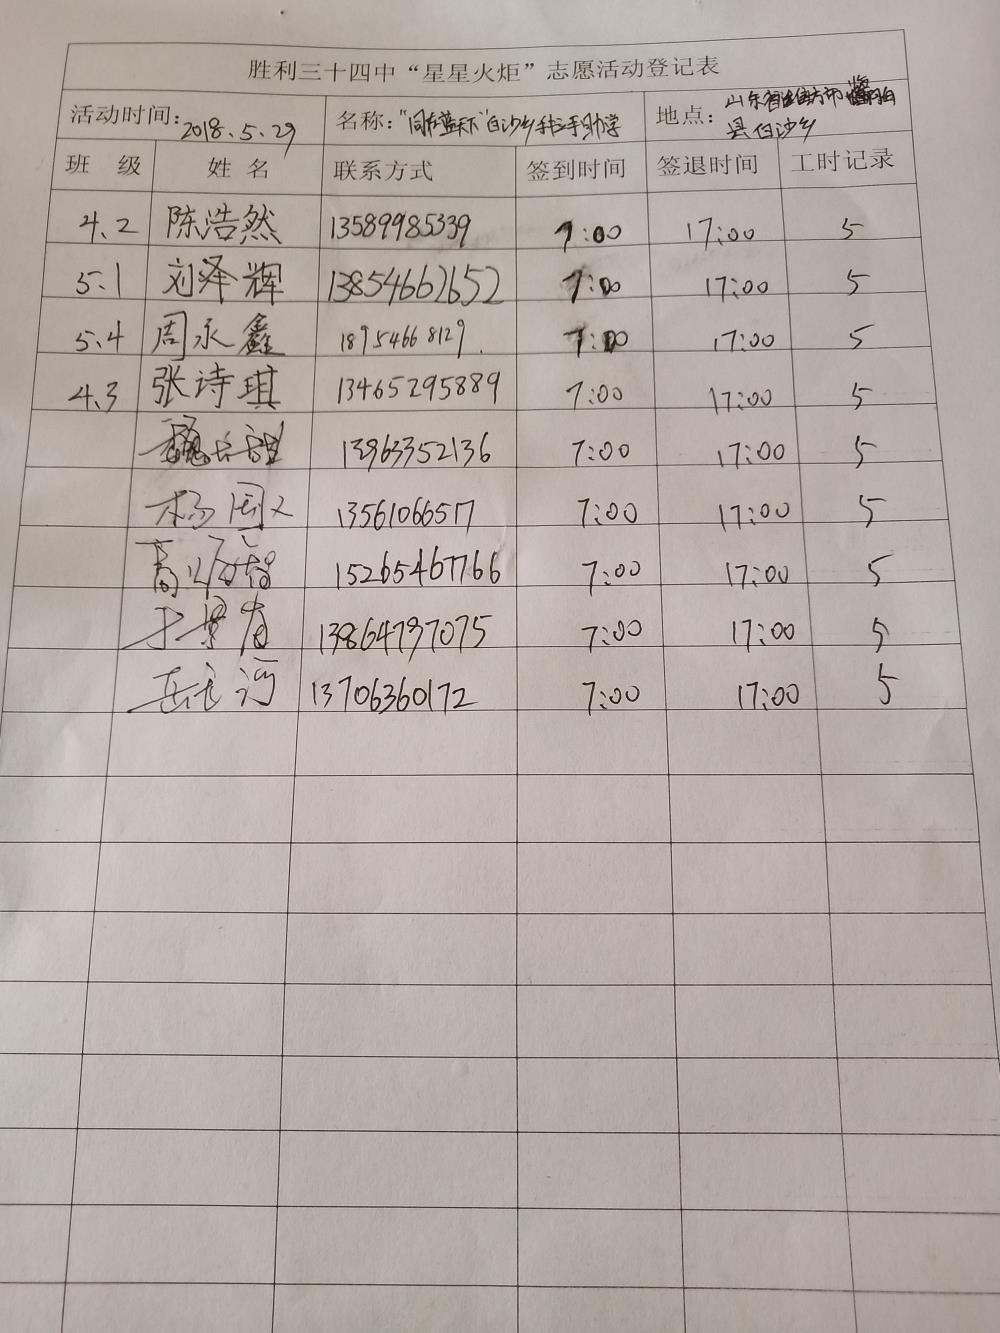 胜利三十四中“星星火炬”志愿活动登记表
活动时间: 2018.5.29 名称:“同在蓝天下”白沙乡手拉手助学 地点: 山东省
县白沙乡
班 级 姓 名 联系方式 签到时间 签退时间 工时记录
4.2 陈浩然 13589985339 7:00 17:00 5
5.1 刘泽辉 13854662652 7:00 17:00 5
5.4 周永鑫 18954668129. 7:00 17:00 5
4.3 张诗琪 13465295889 7:00 17:00 5
13963352136 7:00 17:00 5
杨 13561066517 7:00 17:00 5
高 15265467766 7:00 17:00 5
13864797075 7:00 17:00 5
13706360172 7:00 17:00 5